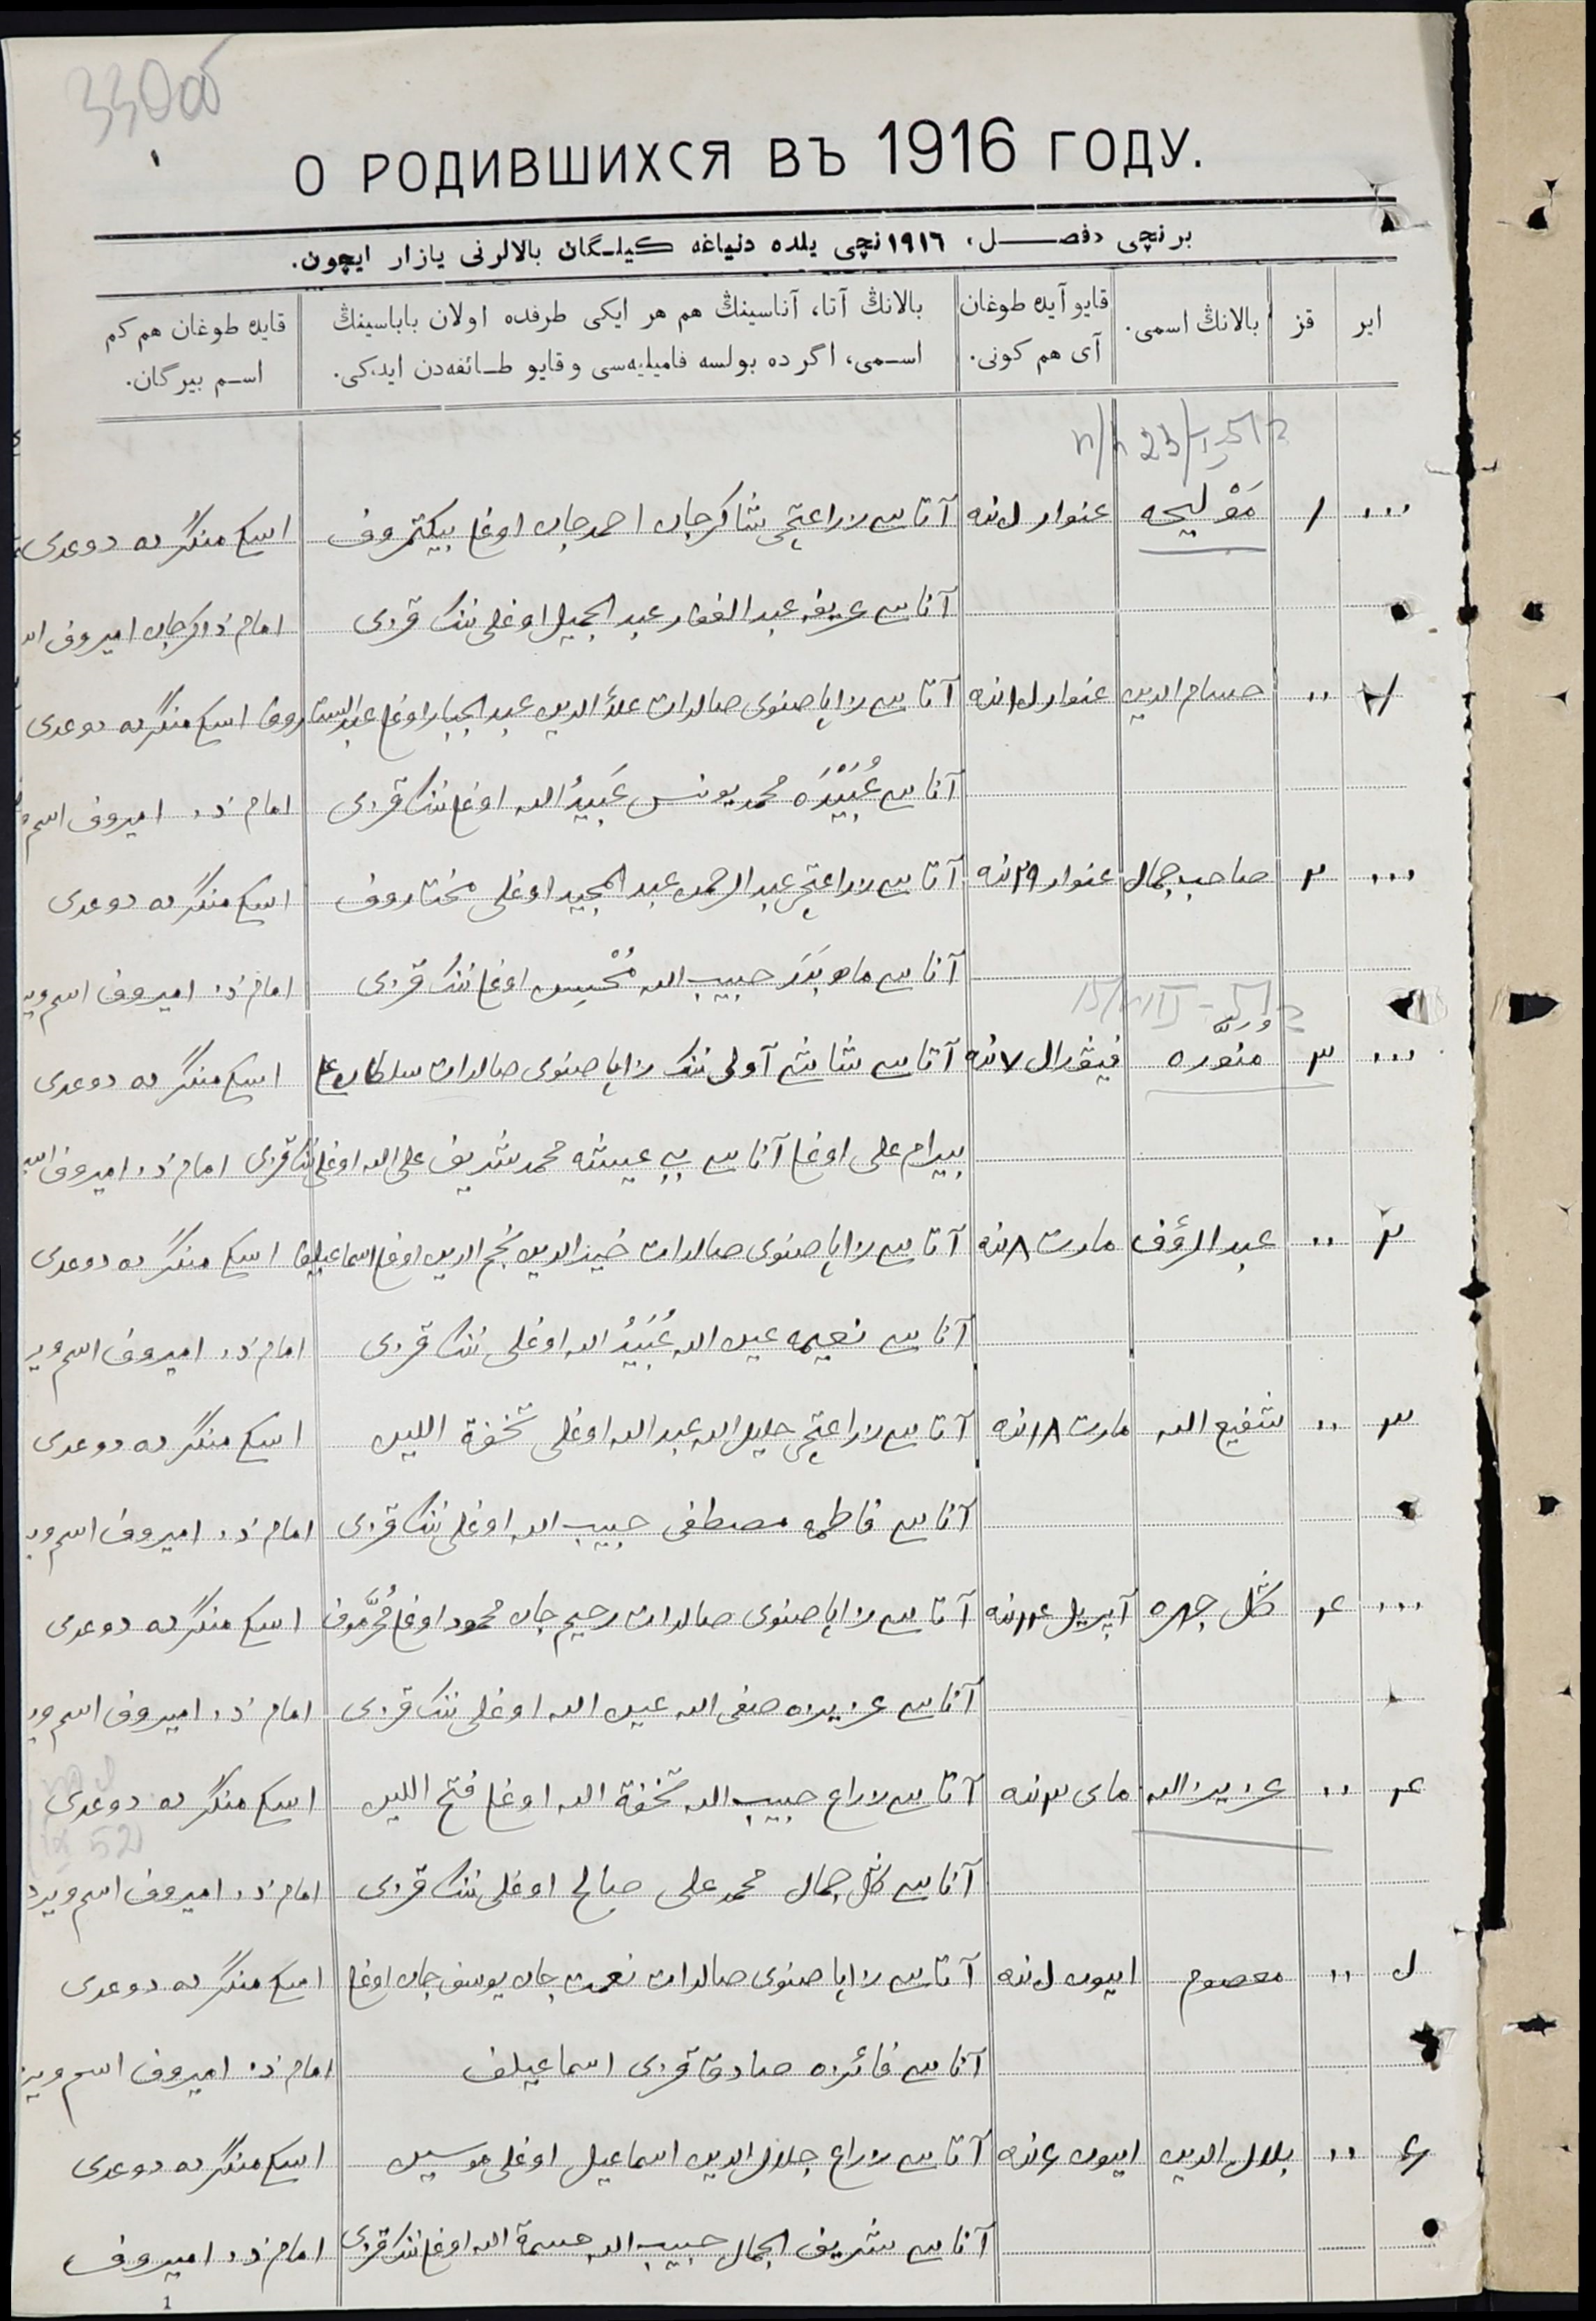 33 об
О РОДИВШИХСЯ ВЪ 1916 ГОДУ.
برنچی «فصل» ١٩١٦ نچی یلده دنیاغه کیلگان بالالرنی یازار ایچون.
ایر قز بالانڭ اسمی. قایو آیده طوغان آی هم کونی. بالانڭ آتا، آناسینڭ هم هر ایکی طرفده اولان باباسینڭ اسمی، اگر ده بولسه فامیلیه‌سی و قایو طائفه‌دن ایدکی. قایده طوغان هم کم اسم بیرگان.
... ١ مَوْلیحه عنوار آتاسی زراعتچی شاکرجان احمدجان اوغلی بیکتمروف اسکی منگرده دوغدی
آناسی عریفه عبدالغفار عبدالجمیل اوغلی ننک قزی امام ذاکرجان امیروف
١ ,, حسام الدین عنوار آتاسی زاپاصنوی صالدات علاء الدین عبدالجبار اوغلی عبدالستاروف اسکی منگرده دوغدی
آناسی عُبَیْدَه محمد یونس عَبیدُ الله اوغلی ننک قزی امام ذ. امیروف اسم
... ٢ صاحب جمال عنوار ٢٩ نده آتاسی زراعتچی عبدالرحمن عبدالمجید اوغلی مختاروف اسکی منگرده دوغدی
آناسی ماه بَدَر حبیب الله مُحْسِن اوغلی ننک قزی امام ذ. امیروف اسم ویر
... ٣ منوره فیورال ٧ نده آتاسی شاشی آولی ننک زاپاصنوی صالدات سلطان علی اسکی منگرده دوغدی
بیرام علی اوغلی آناسی بی بی عیشه محمد شریف علی الله اوغلی ننک قزی امام ذ. امیروف
٢ ,, عبدالرؤف مارت ٨ نده آتاسی زاپاصنوی صالدات خیرالدین نجم الدین اوغلی اسماعیلف اسکی منگرده دوغدی
آناسی نعیمه عین الله عُبَیدُ الله اوغلی ننک قزی امام ذ. امیروف اسم ویر
٣ ,, شفیع الله مارت ١٨ نده آتاسی زراعتچی خلیل الله عبدالله اوغلی تحفة اللین اسکی منگرده دوغدی
آناسی فاطمه مصطفی حبیب الله اوغلی ننک قزی امام ذ. امیروف اسم ویر
... ۴ گل چهره آپریل نده آتاسی زاپاصنوی صالدات رحیم جان محمود اوغلی مُحَرَّموف اسکی منگرده دوغدی
آناسی عزیزه صفی الله عین الله اوغلی ننک قزی امام ذ. امیروف اسم ویر
۴ ,, عزیز الله مای ٣ نده آتاسی زراع حبیب الله تحفة الله اوغلی فتح اللین اسکی منگرده دوغدی
آناسی گل جمال محمد علی صالح اوغلی ننک قزی امام ذ. امیروف اسم ویرد
۵ ,, معصوم اییون ۵ نده آتاسی زاپاصنوی صالدات نعمت جان یوسف جان اوغلی اسکی منگرده دوغدی
آناسی فائزه صادق قزی اسماعیلف امام ذ. امیروف اسم ویر
۶ ,, بلال الدین اییون ۶ نده آتاسی زراع جلال الدین اسماعیل اوغلی موسین اسکی منگرده دوغدی
آناسی شریف الجمال حبیب الله عسمة الله اوغلی ننک قزی امام ذ. امیروف
1